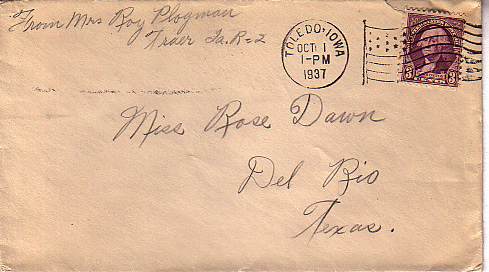 From Mrs Roy Plogman
Traer Ia. R-2
TOLEDO·IOWA
OCT 1
1-PM
1937
3 3
Miss Rose Dawn
Del Rio
Texas.